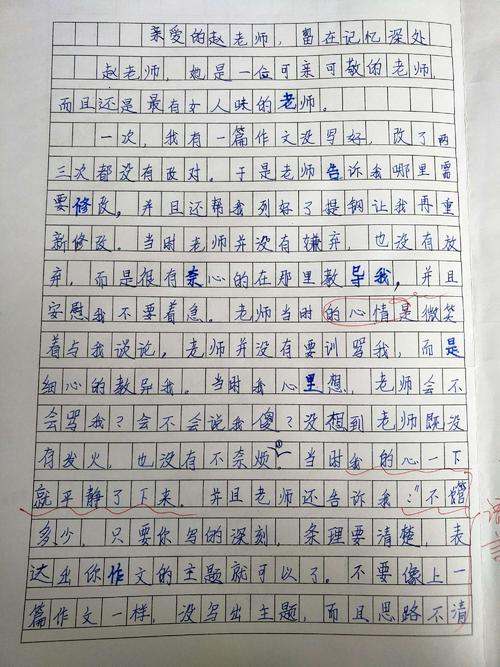 亲爱的赵老师，留在记忆深处
赵老师，她是一位可亲可敬的老师，
而且还是最有女人味的老师。
一次，我有一篇作文没写好，改了两
三次都没有改对。于是老师告诉我哪里需
要修改，并且还帮我列好了提钢让我再重
新修改。当时老师并没有嫌弃，也没有放
弃，而是很有奈心的在那里教导我，并且
安慰我不要着急。老师当时的心情是微笑
着与我谈论，老师并没有要训骂我，而是
细心的教导我。当时我心里想，老师会不
会骂我？会不会说我傻？没想到老师既没
有发火，也没有不奈烦。当时我的心一下
就平静了下来，并且老师还告诉我：“不管
多少，只要你写的深刻，条理要清楚，表
达出你作文的主题就可以了。不要像上一
篇作文一样，没写出主题，而且思路不清